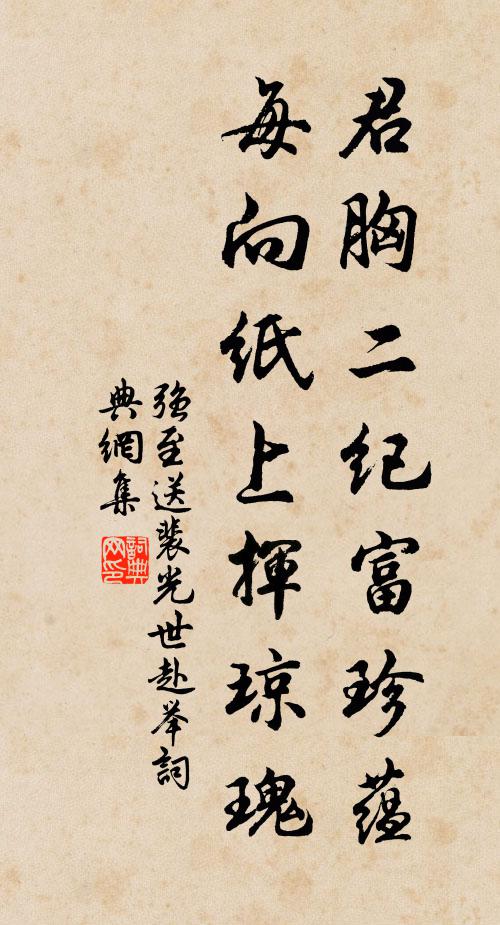 君胸二纪富珍蕴
每向纸上揮琼瑰
强至送裴光世赴举詞
典網集
詞典
网印